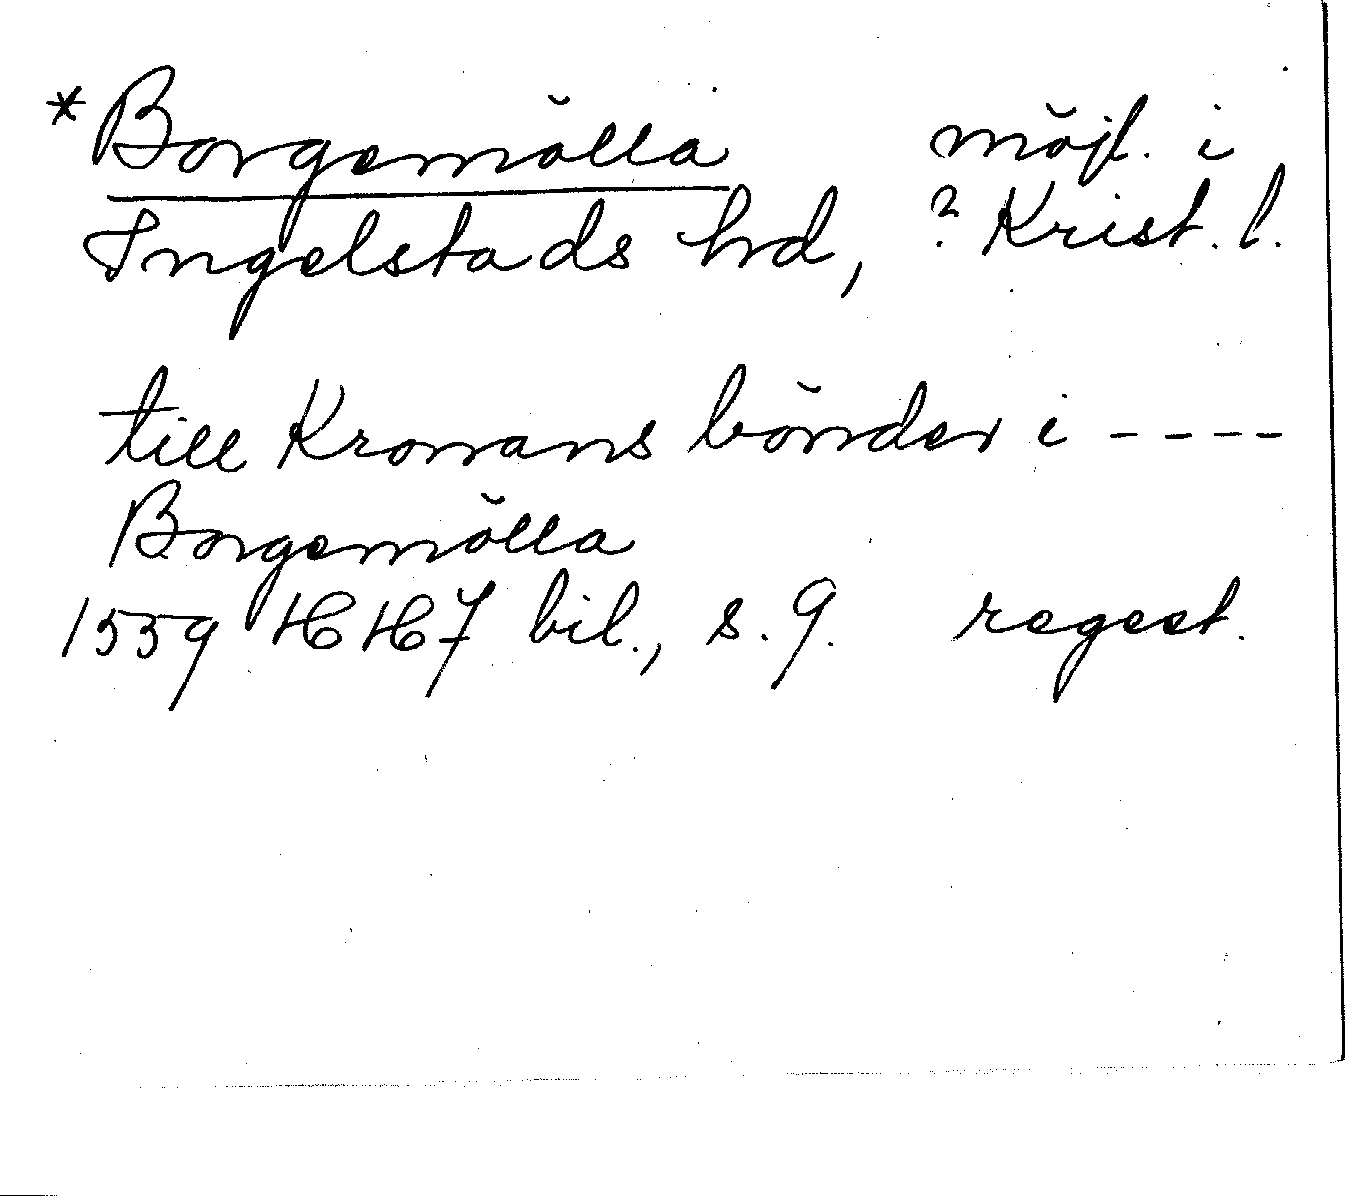 *Borgemölla möjl. i
Ingelstads hd, ? Krist. l.
till Kronans bönder i ----
Borgemölla
1559 HH7 bil., s. 9. regest.